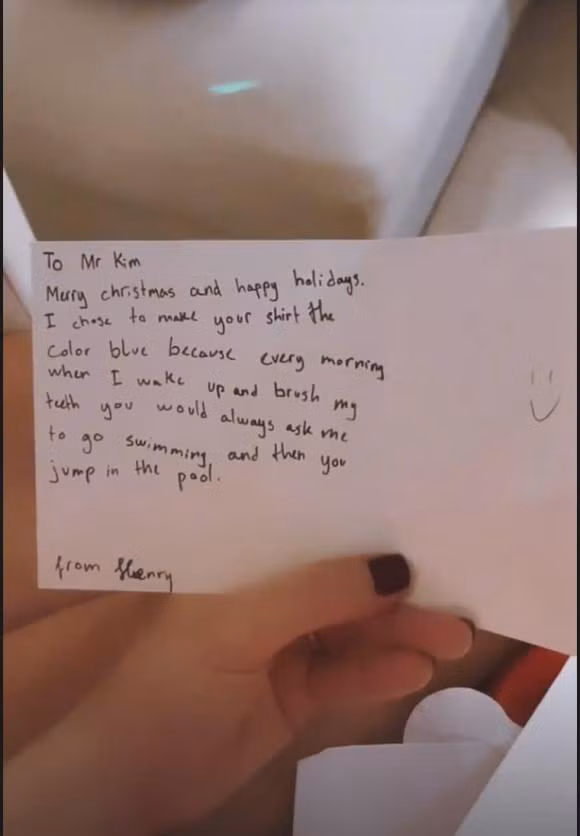 To Mr Kim
Merry christmas and happy holidays.
I chose to make your shirt the
color blue because every morning
when I wake up and brush my
teeth you would always ask me
to go swimming and then you
jump in the pool.
from Henry